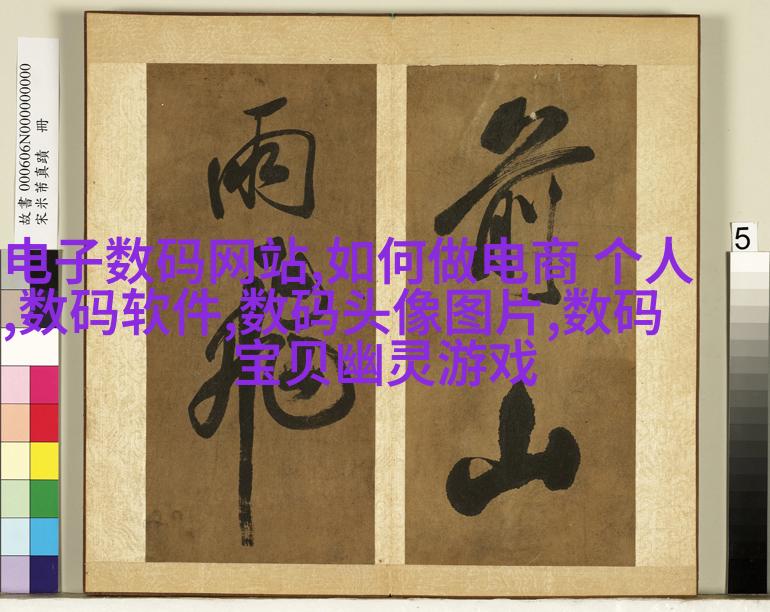 故書 000606N000000000
宋米芾真蹟 冊
前山
雨飛
电子数码网站,如何做电商 个人
,数码软件,数码头像图片,数码
宝贝幽灵游戏
5